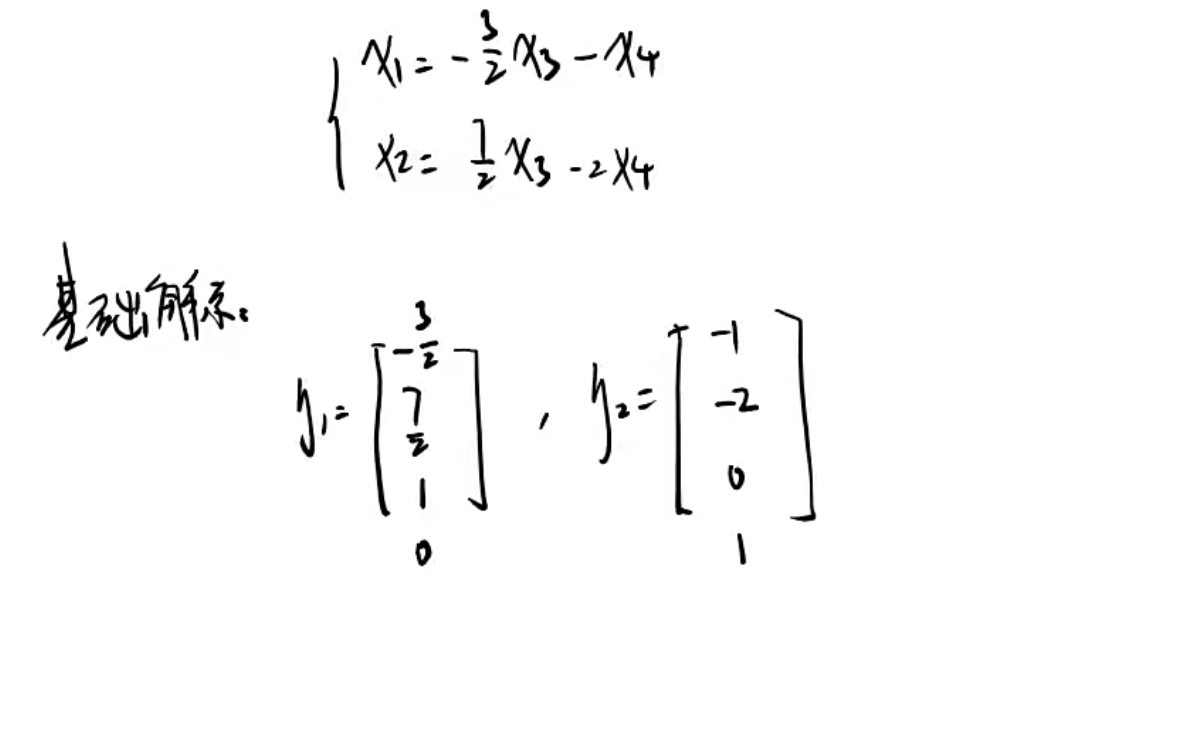 x₁ = -3/2 x₃ - x₄
x₂ = 7/2 x₃ - 2x₄
基础解系：
y₁ = [-3/2 7/2 1 0] , y₂ = [-1 -2 0 1]